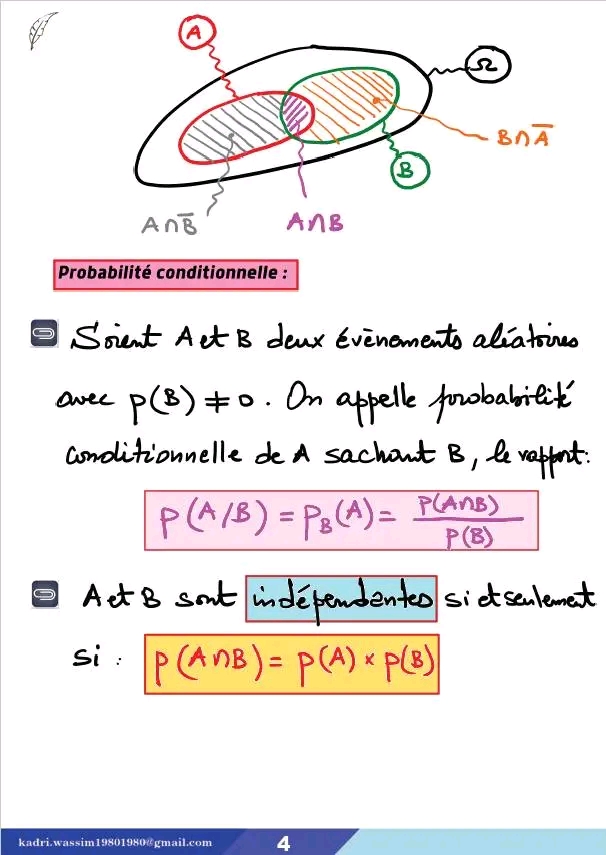 A
Ω
B∩A̅
B
A∩B̅
A∩B
Probabilité conditionnelle :
Soient A et B deux évènements aléatoires
avec p(B) ≠ 0. On appelle probabilité
conditionnelle de A sachant B, le rapport:
p(A/B) = p_B(A) = p(A∩B) / p(B)
A et B sont indépendantes si et seulement
si : p(A∩B) = p(A) × p(B)
kadri.wassim19801980@gmail.com 4